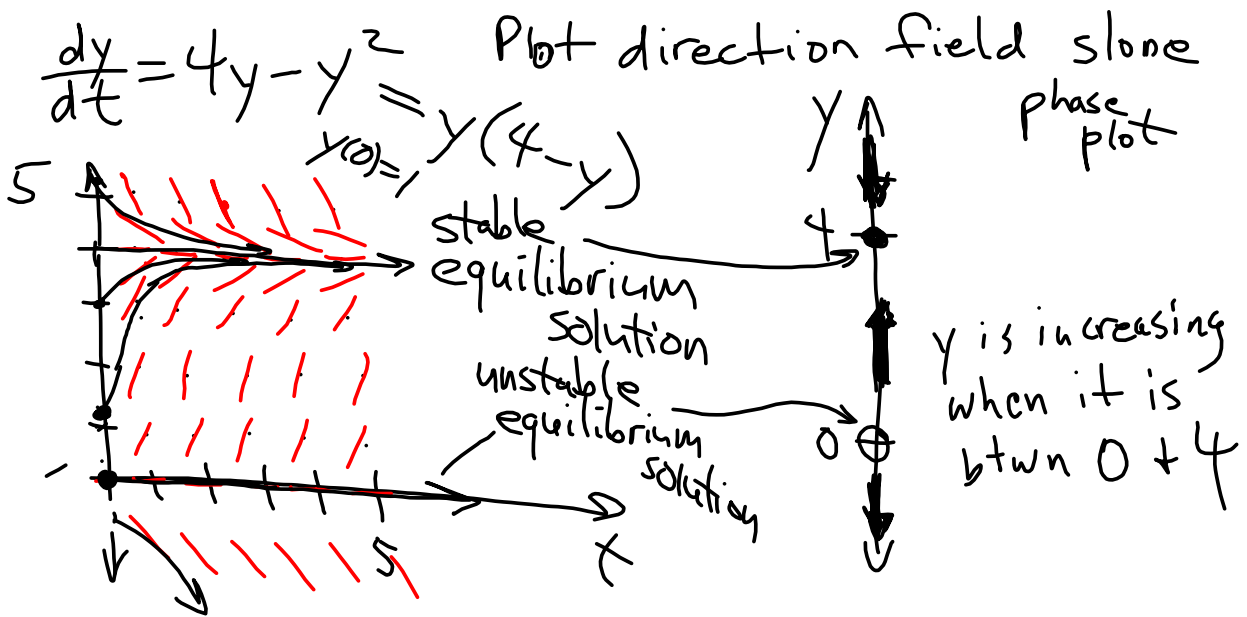 dy/dt = 4y - y² = y(4-y)
Plot direction field slone
phase
plot
y(0)=1
y
5
4
stable
equilibrium
solution
unstable
equilibrium
solution
0
y is increasing
when it is
btwn 0 + 4
5